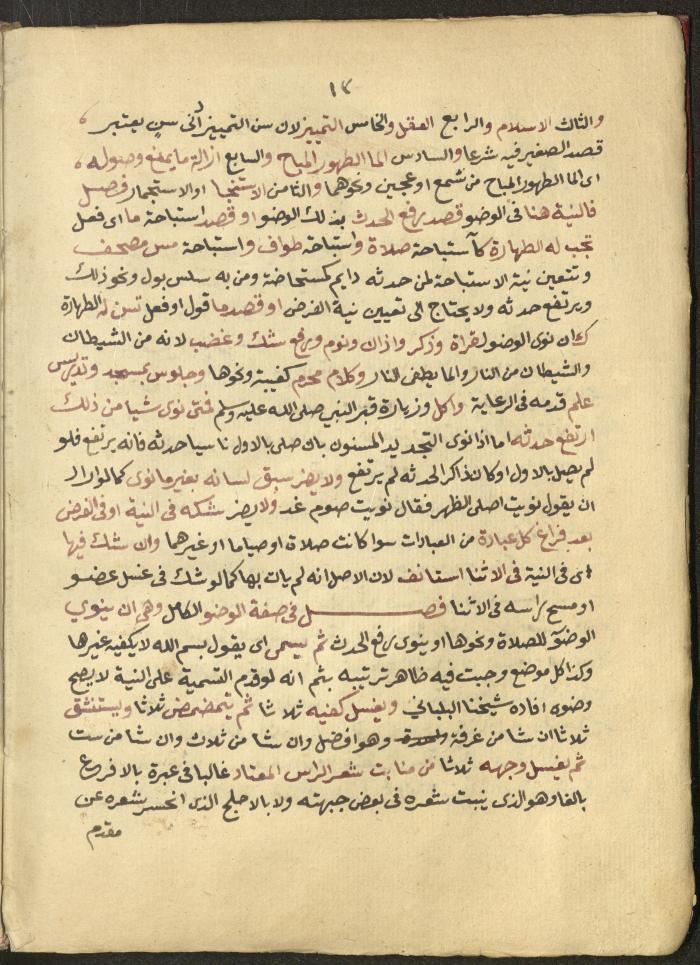 ١٢
والثالث الاسلام والرابع العقل والخامس التمييز لان سن التمييز أدنى سنٍ يعتبر
قصد الصغير فيه شرعا والسادس الما الطهور المباح والسابع ازالة ما يمنع وصوله
اى الما الطهور المباح من شمع او عجين ونحوهما والثامن الاستنجا او الاستجمار فصل
فالنية هنا فى الوضو قصد رفع الحدث بذلك الوضو او قصد استباحة ما اى فعل
تجب له الطهارة كاستباحة صلاة واستباحة طواف واستباحة مس مصحف
وتتعين نية الاستباحة لمن حدثه دايم كمستحاضة ومن به سلس بول ونحو ذلك
ويرتفع حدثه ولا يحتاج الى تعيين نية الفرض او قصد ما قول او فعل تسن له الطهارة
كان نوى الوضو لقراة وذكر واذان ونوم ورفع شك وغضب لانه من الشيطان
والشيطان من النار والما يطفى النار وكلام محرم كغيبة ونحوها وجلوس بمسجد وتدريس
علم قدمه فى الرعاية واكل وزيارة قبر النبي صلى الله عليه وسلم فمتى نوى شيا من ذلك
ارتفع حدثه اما اذا نوى التجديد المسنون بان صلى بالاول ناسيا حدثه فانه يرتفع فلو
لم يصل بالاول او كان ذاكرا لحدثه لم يرتفع ولا يضر سبق لسانه بغير ما نوى كما لو اراد
ان يقول نويت اصلى الظهر فقال نويت صوم غد ولا يضر شكه فى النية او فى الفرض
بعد فراغ كل عبادة من العبادات سوا كانت صلاة او صياما او غيرهما وان شك فيها
اى فى النية فى الاثنا استانف لان الاصل انه لم يات بها كما لو شك فى غسل عضو
او مسح راسه فى الاثنا فصل فى صفة الوضو الكامل وهى ان ينوي
الوضوَ للصلاة ونحوها او ينوى رفع الحدث ثم يسمى اى يقول بسم الله لا يكفيه غيرها
وكذا كل موضع وجبت فيه ظاهر ترتيبه بثم انه لو قدم التسمية على النية لا يصح
وضوه افاده شيخنا البلباني ويغسل كفيه ثلاثا ثم يتمضمض ثلاثا ويستنشق
ثلاثا ان شا من غرفة واحدة وهو افضل وان شا من ثلاث وان شا من ست
ثم يغسل وجهه ثلاثا من منابت شعر الراس المعتاد غالبا فى عبرة بالافرع
بالفا وهو الذى ينبت شعره فى بعض جبهته ولا بالاجلح الذى انحسر شعره عن
مقدم